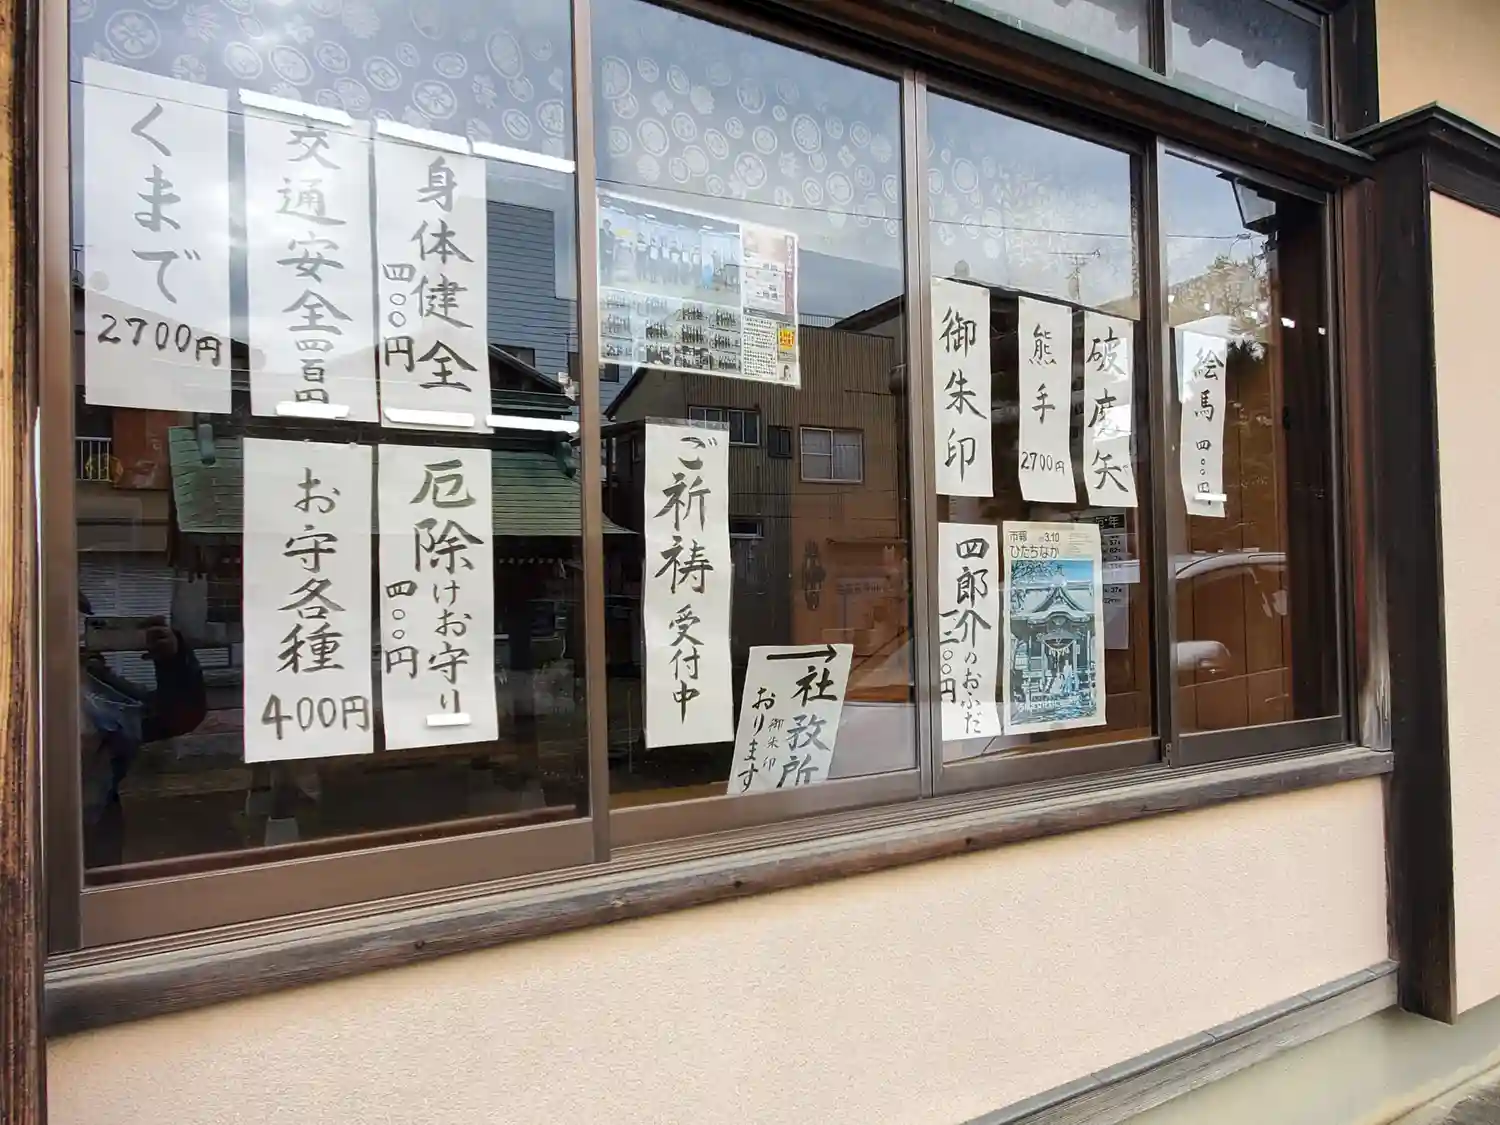 くまで
2700円
交通安全四百円
身体健全
四〇〇円
お守各種
400円
厄除けお守り
四〇〇円
ご祈祷受付中
→
社務所
御朱印
おります
御朱印
熊手
2700円
破魔矢
絵馬
四〇〇円
四郎介のおふだ
市報
3.10
ひたちなか